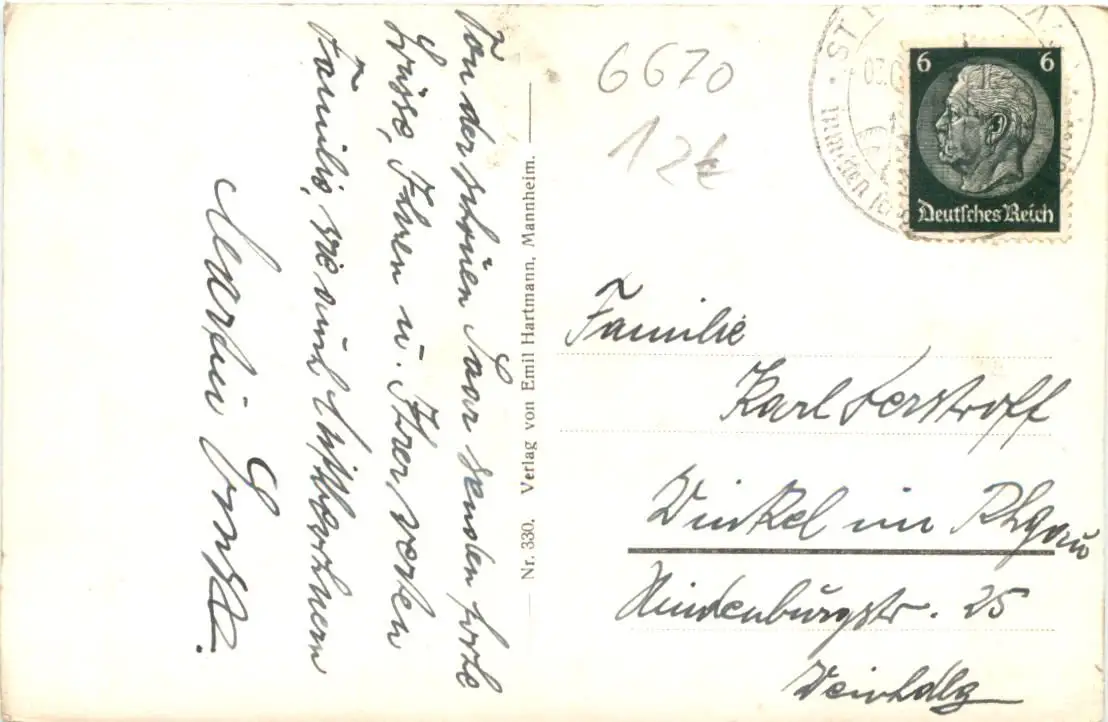 Von der schönen Saar senden frohe
Grüsse, Ihnen u. Ihrer werten
Familie, sowie auch Mitbewohnern
Ernst.
Nr. 330. Verlag von Emil Hartmann, Mannheim.
6670
12€
ST
6 6
Deutsches Reich
Familie
Karl Ferstroff
Winkel im Rhgau
Hindenburgstr. 25
Weinhdlg